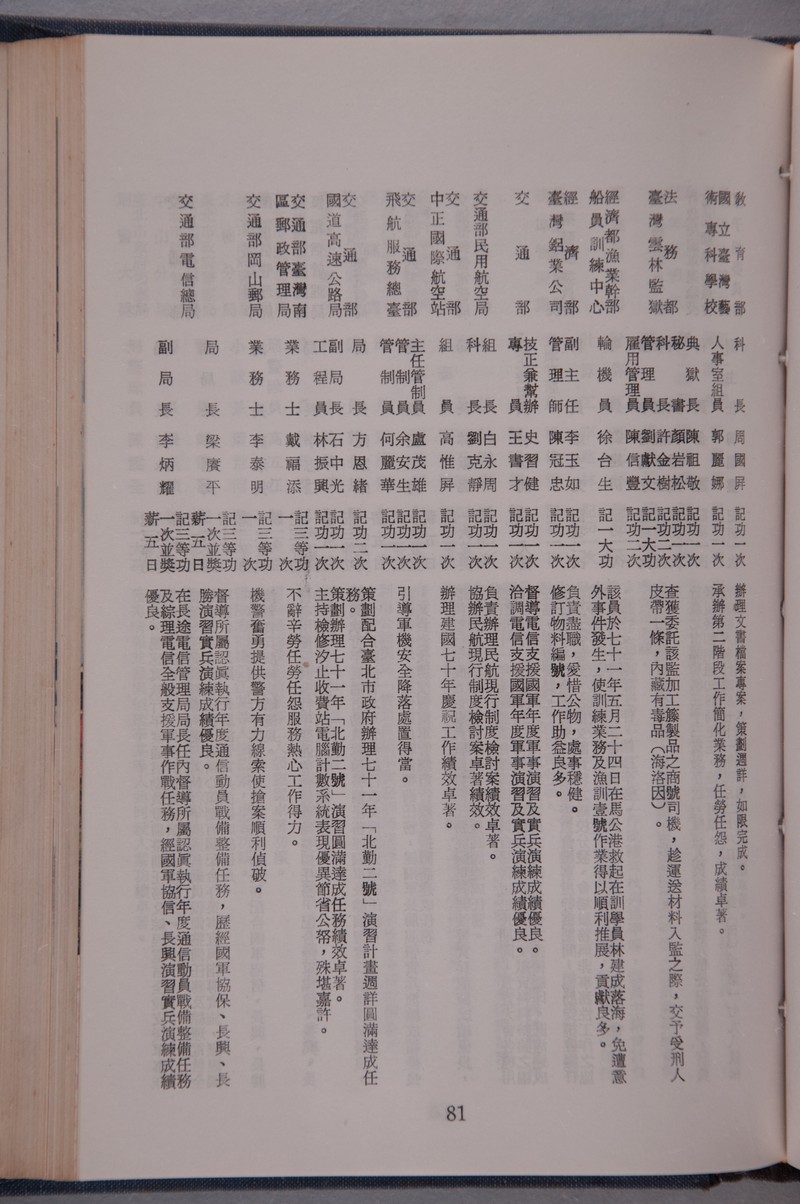 教育部 科長 周國屏 記功一次 辦理文書檔案專案，策劃週詳，如限完成。
國立臺灣藝術專科學校 人事室組員 郭麗娜 記功一次 承辦第二階段工作簡化業務，任勞任怨，成績卓著。
法務部臺灣雲林監獄 典獄長 陳祖敬 記功一次 查獲委託該監加工籐製品之商號司機，趁運送材料入監之際，交予受刑人
秘書 顏岩松 記功一次 皮帶一條，內藏有毒品（海洛因）。
科長 許金樹 記功二次
管理員 劉獻文 記一大功
雇用管理員 陳信豐 記功二次
經濟都漁業幹部船員訓練中心 輪機員 徐台生 記一大功 該員於七十一年五月二十四日在馬公港救起在訓學員林建成落海，免遭意
外事件發生，使訓練業務及漁訓壹號作業得以順利推展，貢獻良多。
經濟部臺灣鋁業公司 副主任 李玉如 記功一次 負責盡職，愛惜公物，處事穩健。
管理師 陳冠忠 記功一次 修訂物料編號，工作助益良多。
交通部 技正兼幫辦 史習健 記功一次 督導電信支援國軍年度軍事演習及實兵演練成績優良。
專員 王書才 記功一次 洽調電信支援國軍年度軍事演習及實兵演練成績優良。
交通部民用航空局 組長 白永周 記功一次 負責辦理民航現行制度檢討案績效卓著。
科長 劉克靜 記功一次 協辦民航現行制度檢討案卓著績效。
交通部中正國際航空站 組員 高惟屏 記功一次 辦理建國七十年慶祝工作績效卓著。
交通部飛航服務總臺 主任管制員 盧茂雄 記功一次 引導軍機安全降落處置得當。
管制員 余安生 記功一次
管制員 何麗華 記功一次
交通部國道高速公路局 局長 方恩緒 記功二次 策劃配合臺北市政府辦理七十一年「北勤二號」演習計畫週詳圓滿達成任
務。
副局長 石中光 記功一次 策劃辦理七十一年「北勤二號」演習圓滿達成任務績效卓著。
工程員 林振興 記功一次 主持檢修汐止收費站電腦計數系統表現優異節省公帑，殊堪嘉許。
交通部臺灣南區郵政管理局 業務士 戴福添 記三等功一次 不辭辛勞任勞任怨服務熱心工作得力。
交通部岡山郵局 業務士 李泰明 記三等功一次 機警奮勇提供警方有力線索使搶案順利偵破。
交通部電信總局 局長 梁賡平 記三等功一次並獎薪一五日 督導所屬認眞執行年度通信動員戰備整備任務，歷經國軍協保、長興、長
勝演習實兵演練成績優良。
副局長 李炳耀 記三等功一次並獎薪一五日 在長途電信管理局局長任內督導所屬認眞執行年度通信動員戰備整備任務
及綜理電信全般支援軍事作戰任務，經國軍協信、長興演習實兵演練成績
優良。
81